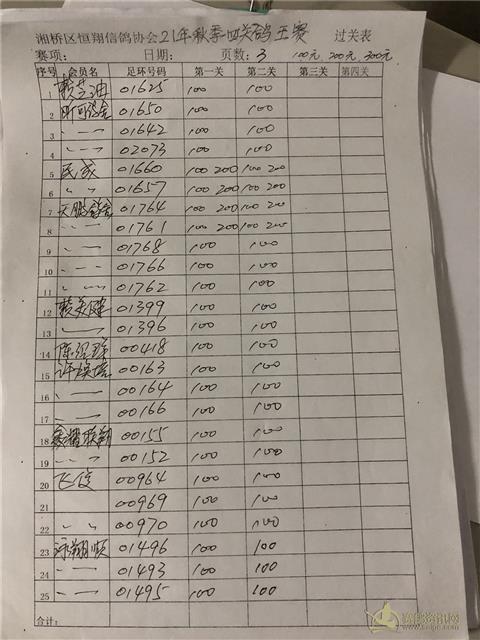 湘桥区恒翔信鸽协会21年秋季四关鸽王赛 过关表
赛项: 日期: 页数: 3 100元, 200元, 300元
序号 会员名 足环号码 第一关 第二关 第三关 第四关
1 01625 100 100
2 01650 100 100
3 〃 01642 100 100
4 〃 02073 100 100
5 民成 01660 100 200 100 200
6 〃 〃 01657 100 200 100 200
7 天鹏鸽舍 01764 100 200 100 200
8 〃 01761 100 200 100 200
9 〃 01768 100 100
10 〃 01766 100 100
11 〃 01762 100 100
12 01399 100 100
13 〃 01396 100 100
14 00418 100 100
15 00163 100 100
16 〃 00164 100 100
17 〃 00166 100 100
18 00155 100 100
19 〃 00152 100 100
20 飞俊 00964 100 100
21 00969 100 100
22 〃 〃 00970 100 100
23 翔顺 01496 100 100
24 〃 01493 100 100
25 〃 01495 100 100
合计: